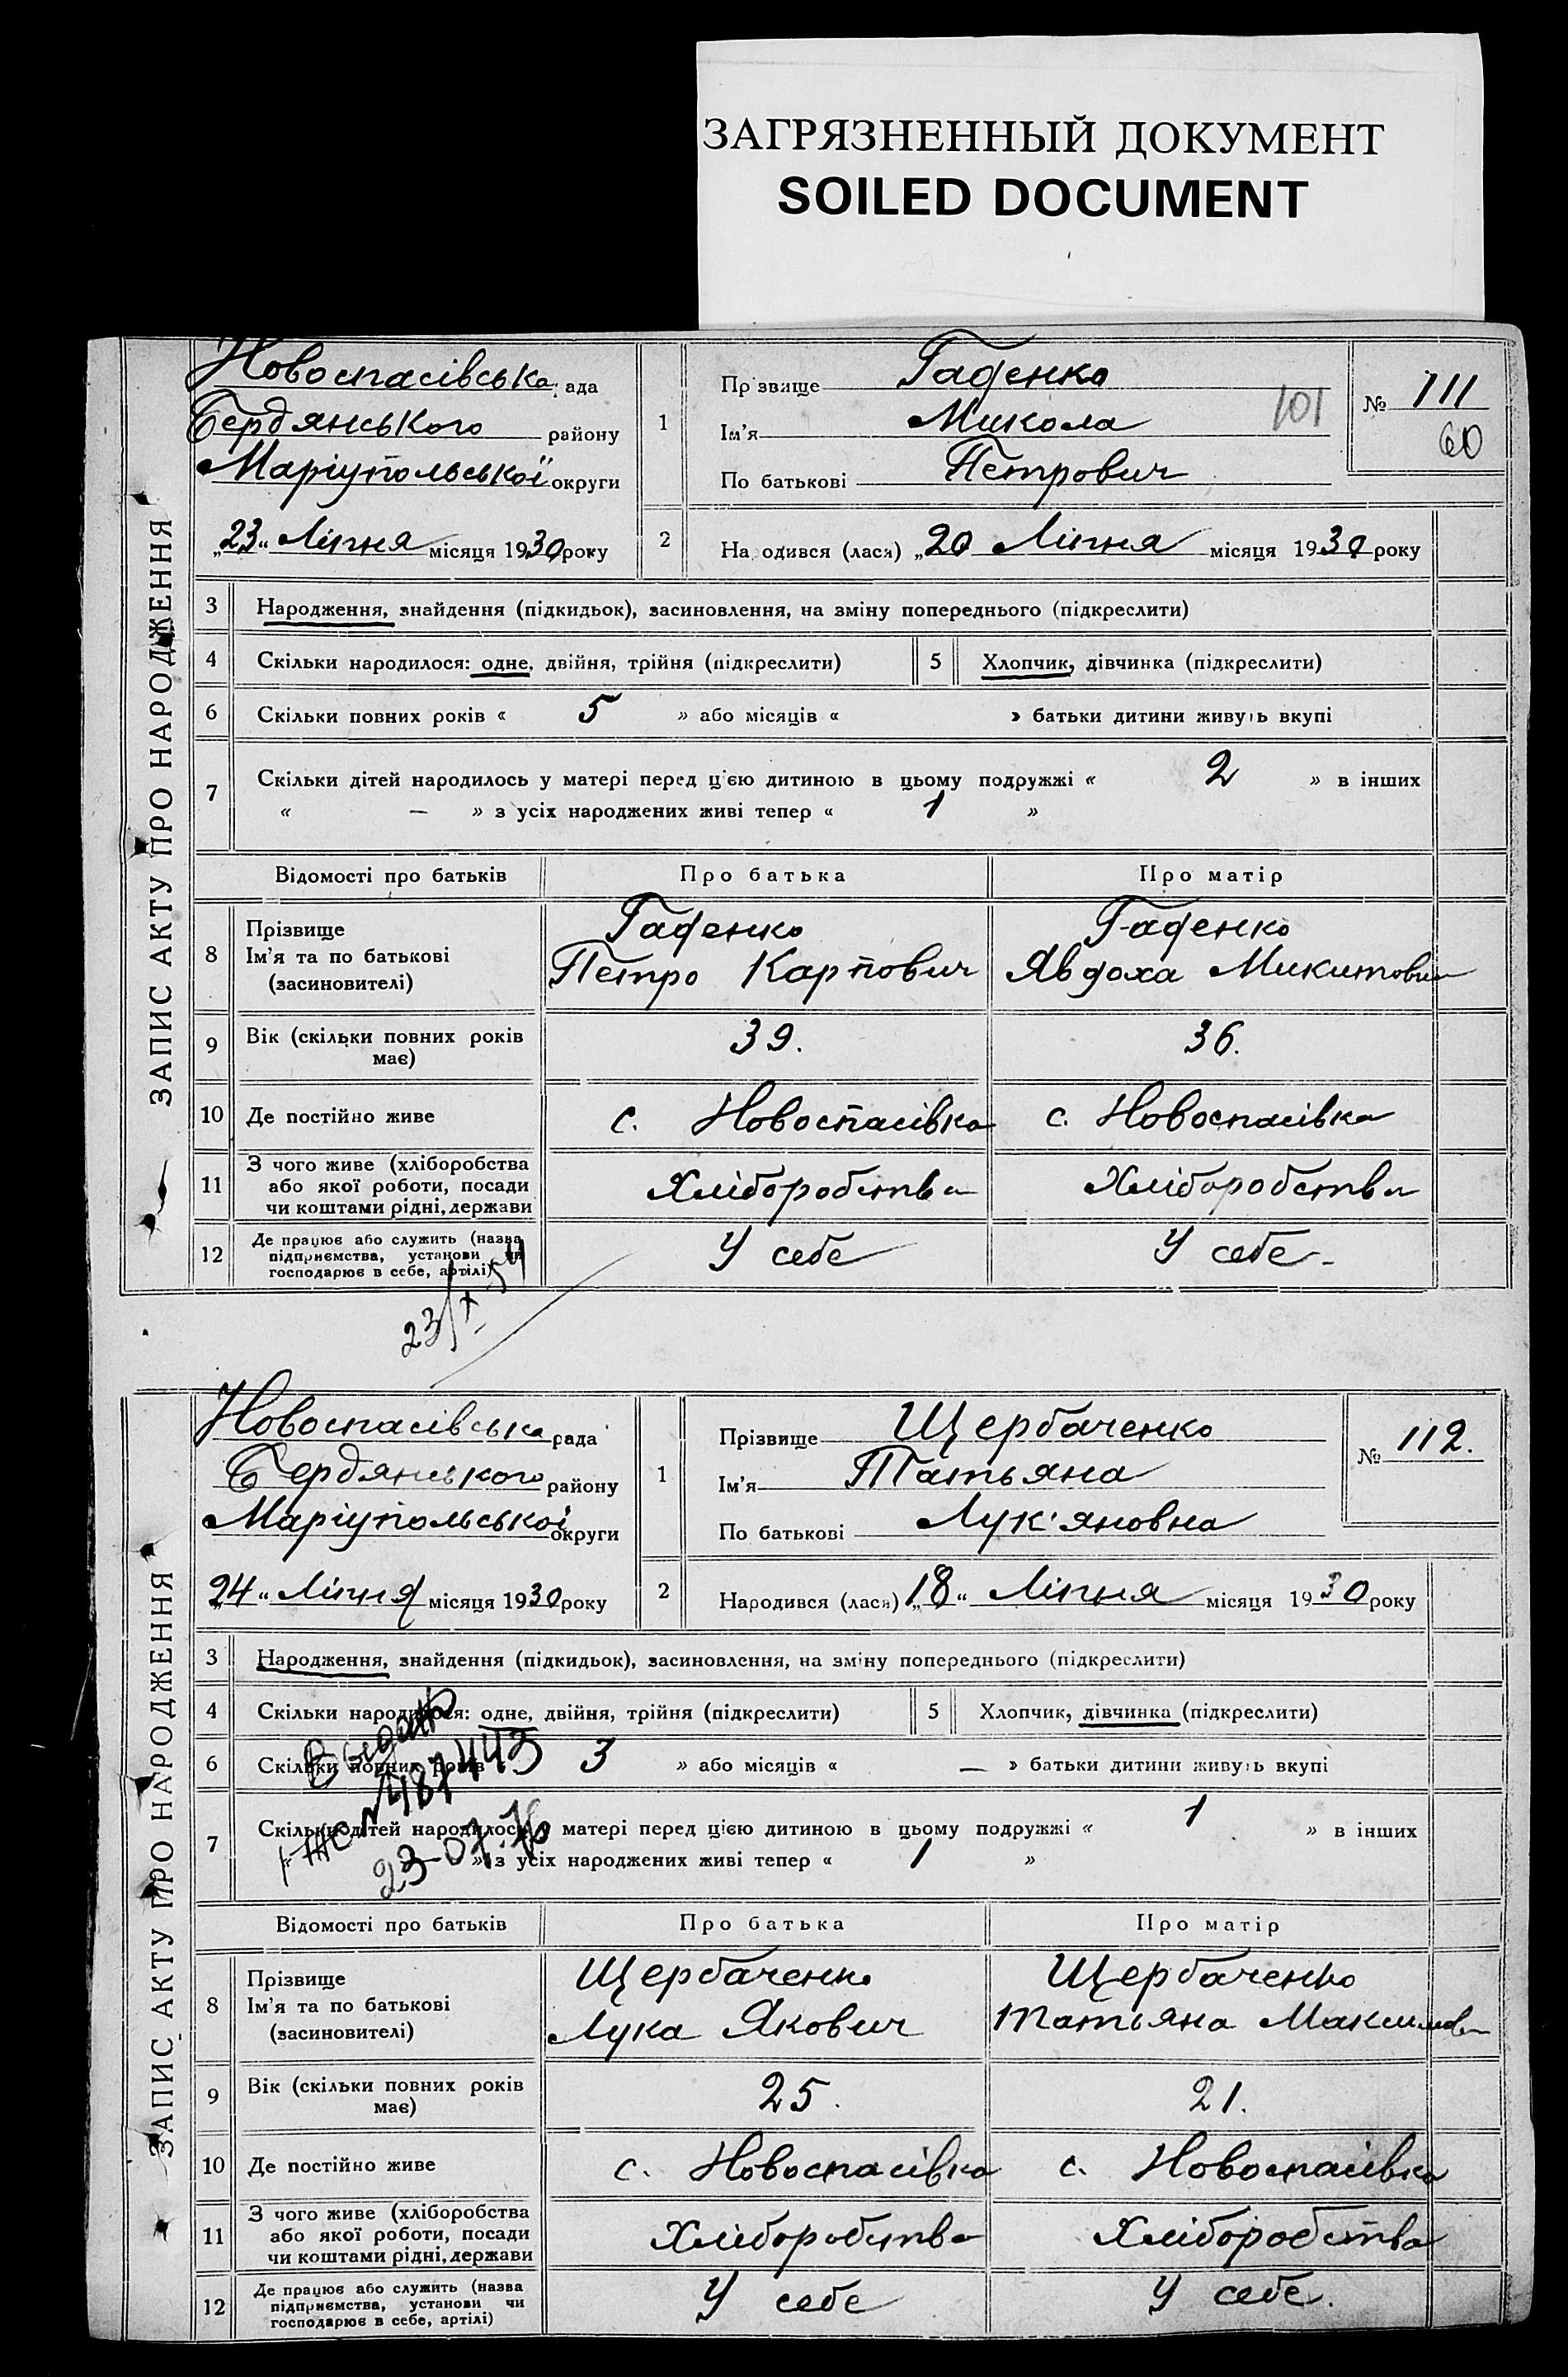 ЗАГРЯЗНЕННЫЙ ДОКУМЕНТ
SOILED DOCUMENT
ЗАПИС АКТУ ПРО НАРОДЖЕННЯ
Новоспасівська рада
Бердянського району
Маріупольської округи
„23“ Ліпня місяця 1930 року
1 Прізвище Гаденко
Ім’я Микола 101
По батькові Петрович
№ 111
60
2 Народився (лася) „20 Ліпня місяця 1930 року
3 Народження, знайдення (підкидьок), засиновлення, на зміну попереднього (підкреслити)
4 Скільки народилося: одне, двійня, трійня (підкреслити) 5 Хлопчик, дівчинка (підкреслити)
6 Скільки повних років « 5 » або місяців « » батьки дитини живуть вкупі
7 Скільки дітей народилось у матері перед цією дитиною в цьому подружжі « 2 » в інших
« — » з усіх народжених живі тепер « 1 »
Відомості про батьків Про батька Про матір
8 Прізвище Гаденко Гаденко
Ім’я та по батькові Петро Карпович Явдоха Микитовн
(засиновителі)
9 Вік (скільки повних років має) 39. 36.
10 Де постійно живе с. Новоспасівка с. Новоспасівка
11 З чого живе (хліборобства
або якої роботи, посади Хліборобства Хліборобства
чи коштами рідні, держави
12 Де працює або служить (назва
підприємства, установи чи У себе У себе
господарює в себе, артілі)
23/X-54
ЗАПИС АКТУ ПРО НАРОДЖЕННЯ
Новоспасівська рада
Бердянського району
Маріупольської округи
„24“ Ліпня місяця 1930 року
1 Прізвище Щербаченко
Ім’я Татьяна
По батькові Лук'яновна
№ 112.
2 Народився (лася) „18“ Ліпня місяця 1930 року
3 Народження, знайдення (підкидьок), засиновлення, на зміну попереднього (підкреслити)
4 Скільки народилося: одне, двійня, трійня (підкреслити) 5 Хлопчик, дівчинка (підкреслити)
6 Скільки повних років « 3 » або місяців « — » батьки дитини живуть вкупі
7 Скільки дітей народилось у матері перед цією дитиною в цьому подружжі « 1 » в інших
« » з усіх народжених живі тепер « 1 »
Выдано
№ 487443
23-07-76
Відомості про батьків Про батька Про матір
8 Прізвище Щербаченко Щербаченко
Ім’я та по батькові Лука Якович Татьяна Максимовн
(засиновителі)
9 Вік (скільки повних років має) 25. 21.
10 Де постійно живе с. Новоспасівка с. Новоспасівка
11 З чого живе (хліборобства
або якої роботи, посади Хліборобства Хліборобства
чи коштами рідні, держави
12 Де працює або служить (назва
підприємства, установи чи У себе У себе.
господарює в себе, артілі)